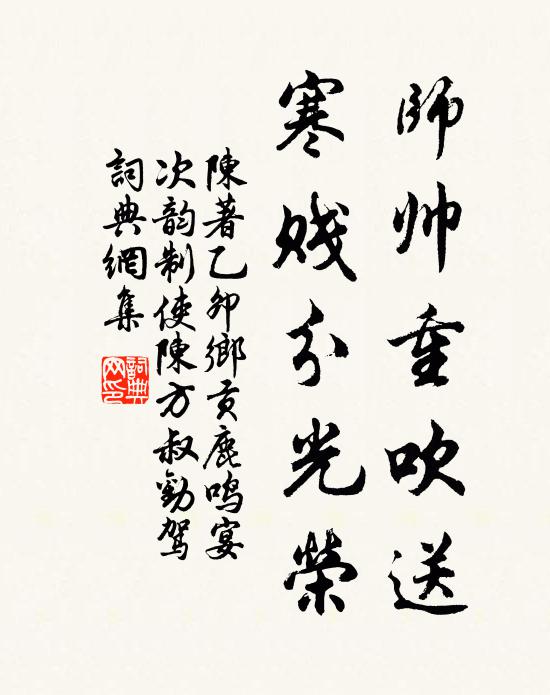 師帥重吹送
寒賤分光榮
陳著乙卯鄉貢鹿鳴宴
次韵制使陳方叔勸駕
詞典網集
詞典
网印